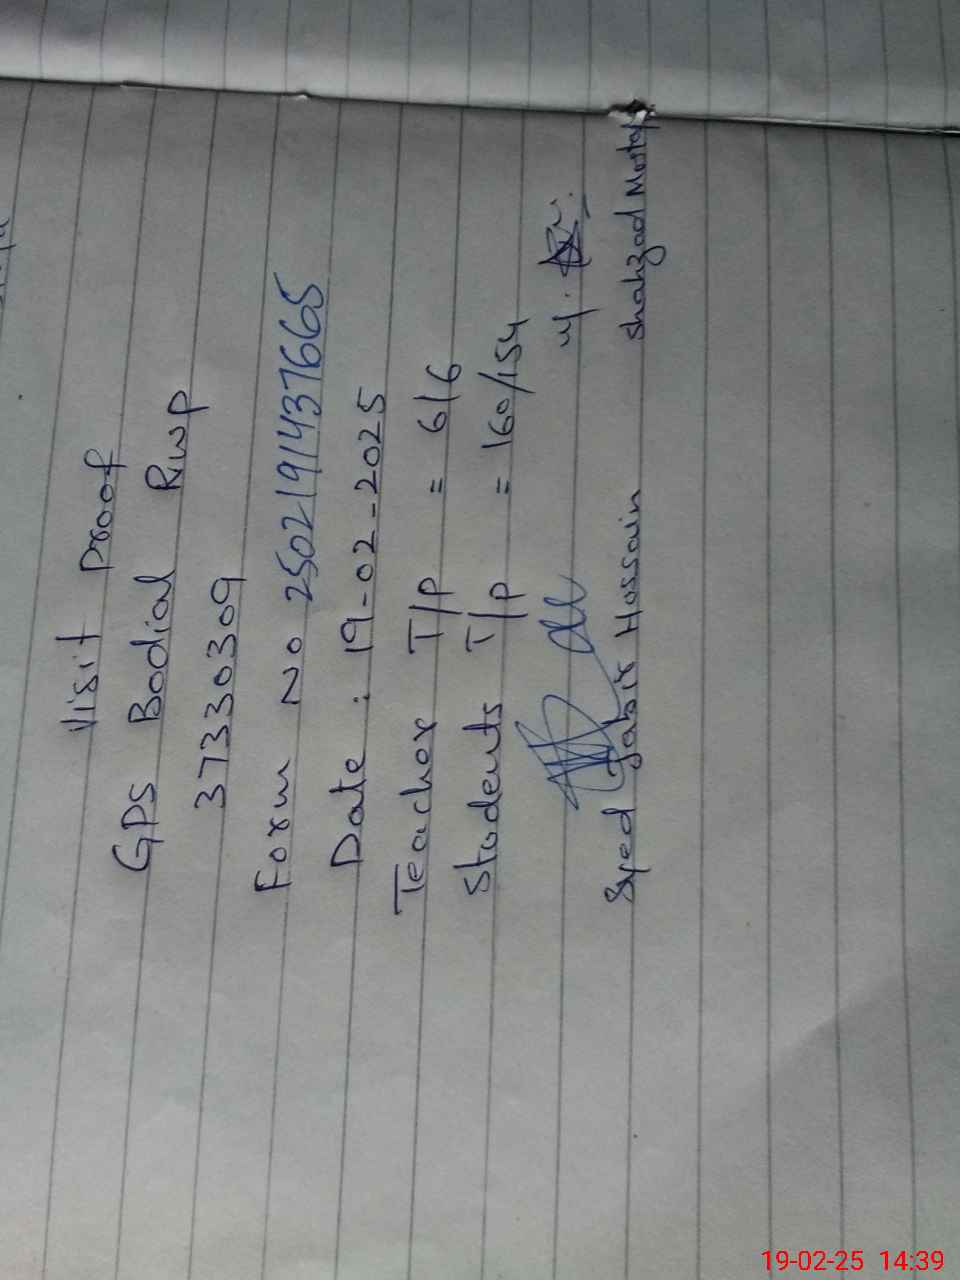 Visit Proof
GPS Bodial Rwp
37330309
Form No 2502191437665
Date : 19-02-2025
Teacher T/P = 6/6
Students T/P = 160/154
Syed Jabir Hossain
Shahzad Mosta
19-02-25 14:39